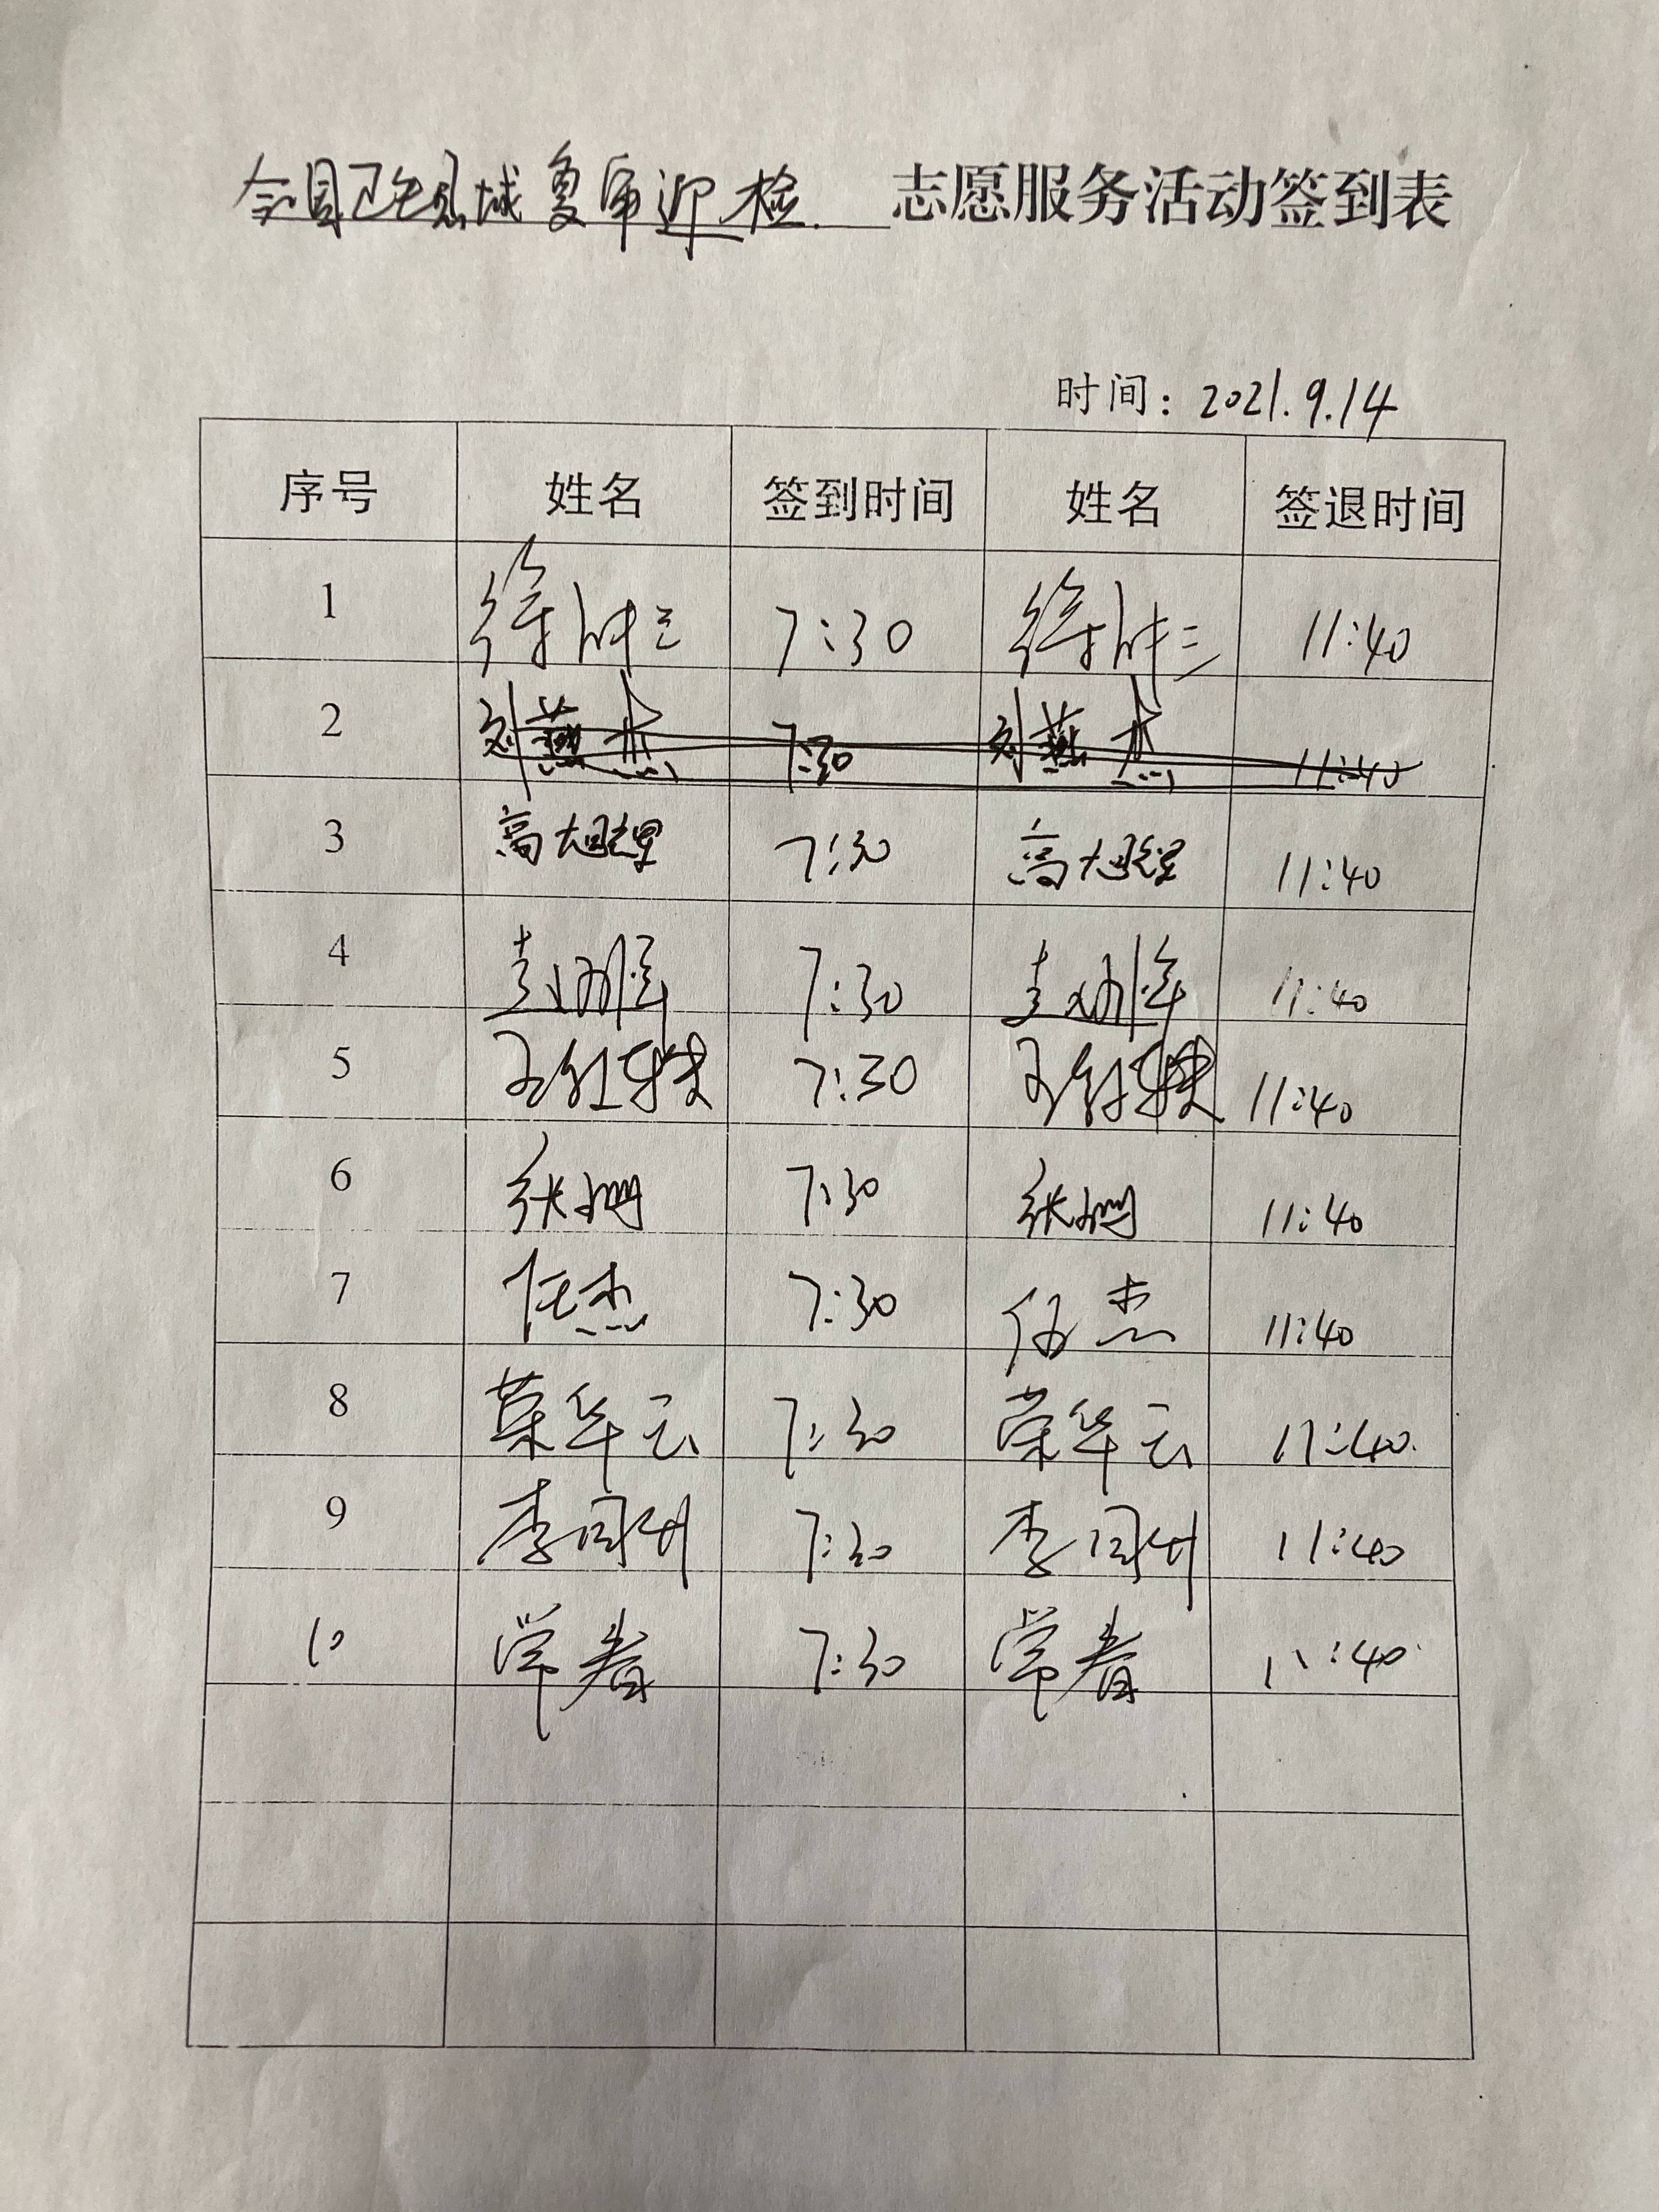 全国卫生县城复审迎检 志愿服务活动签到表
时间: 2021.9.14
序号 姓名 签到时间 姓名 签退时间
1 徐胜三 7:30 徐胜三 11:40
2 刘燕杰 7:30 刘燕杰 11:40
3 高旭辉 7:30 高旭辉 11:40
4 7:30 11:40
5 7:30 11:40
6 张姗 7:30 张姗 11:40
7 任杰 7:30 任杰 11:40
8 荣华云 7:30 荣华云 11:40
9 李同州 7:30 李同州 11:40
10 常春 7:30 常春 11:40